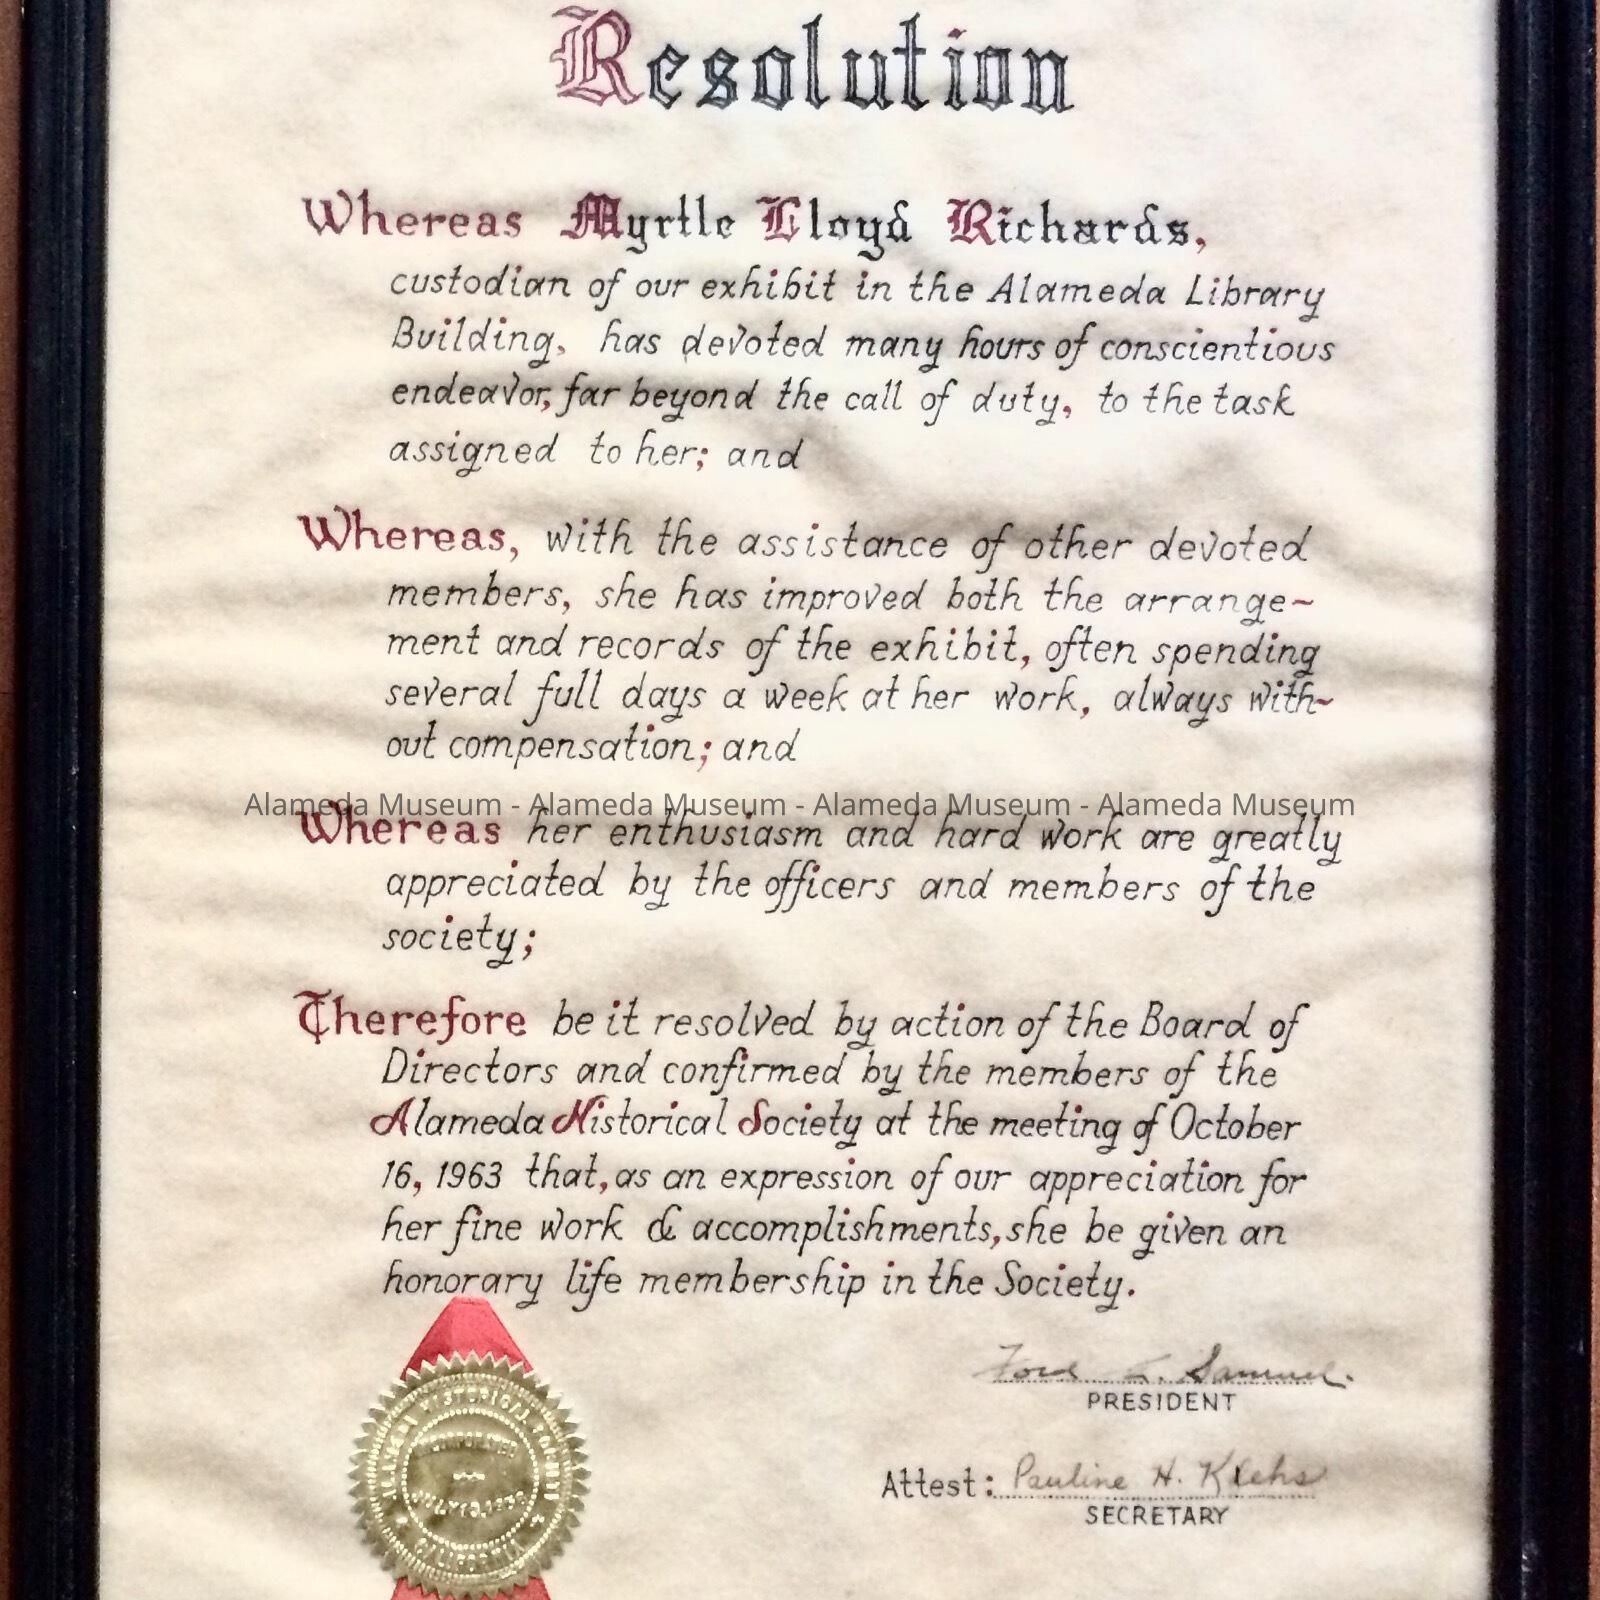 Resolution
Whereas Myrtle Lloyd Richards,
custodian of our exhibit in the Alameda Library
Building, has devoted many hours of conscientious
endeavor, far beyond the call of duty, to the task
assigned to her; and
Whereas, with the assistance of other devoted
members, she has improved both the arrange~
ment and records of the exhibit, often spending
several full days a week at her work, always with~
out compensation; and
Alameda Museum - Alameda Museum - Alameda Museum - Alameda Museum
Whereas her enthusiasm and hard work are greatly
appreciated by the officers and members of the
society;
Therefore be it resolved by action of the Board of
Directors and confirmed by the members of the
Alameda Historical Society at the meeting of October
16, 1963 that, as an expression of our appreciation for
her fine work & accomplishments, she be given an
honorary life membership in the Society.
Ford E. Samuel.
PRESIDENT
Attest: Pauline H. Klehs
SECRETARY
ALAMEDA HISTORICAL SOCIETY
INCORPORATED
CALIFORNIA